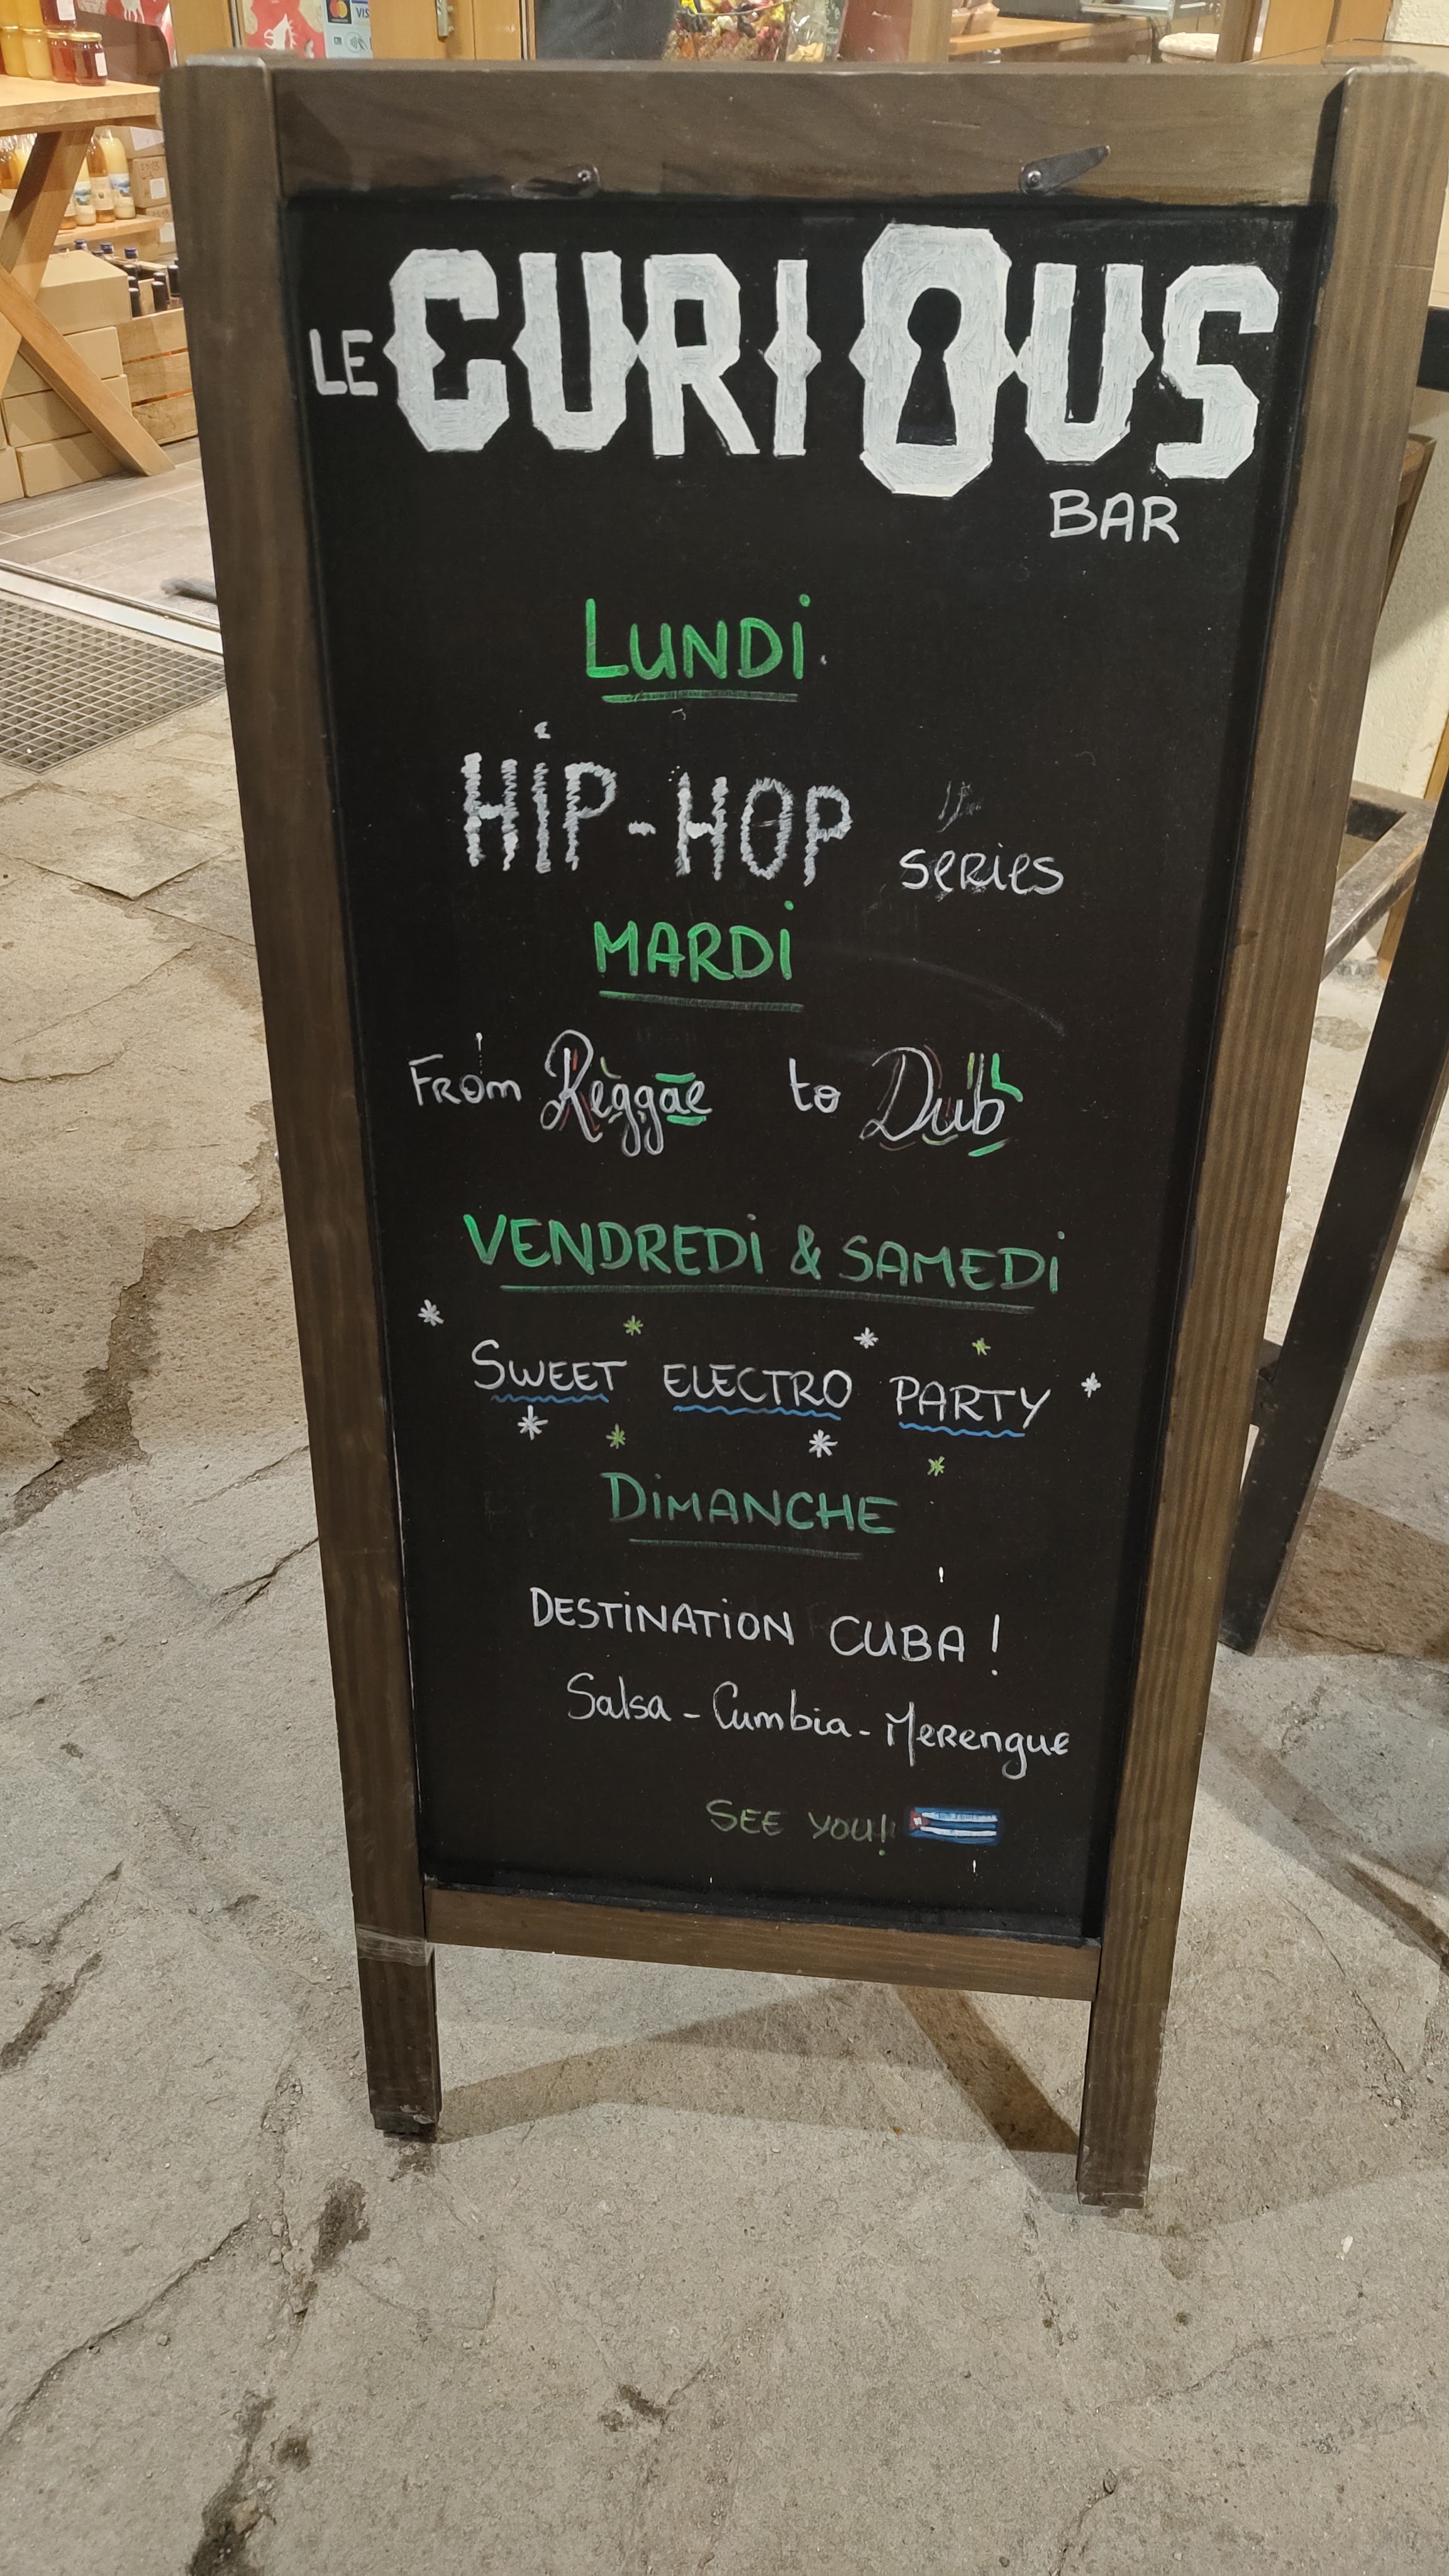 LE CURIOUS
BAR
LUNDI
HIP-HOP SERIES
MARDI
FROM Reggae to Dub
VENDREDI & SAMEDI
SWEET ELECTRO PARTY
DIMANCHE
DESTINATION CUBA !
Salsa - Cumbia - Merengue
SEE YOU!
VISA